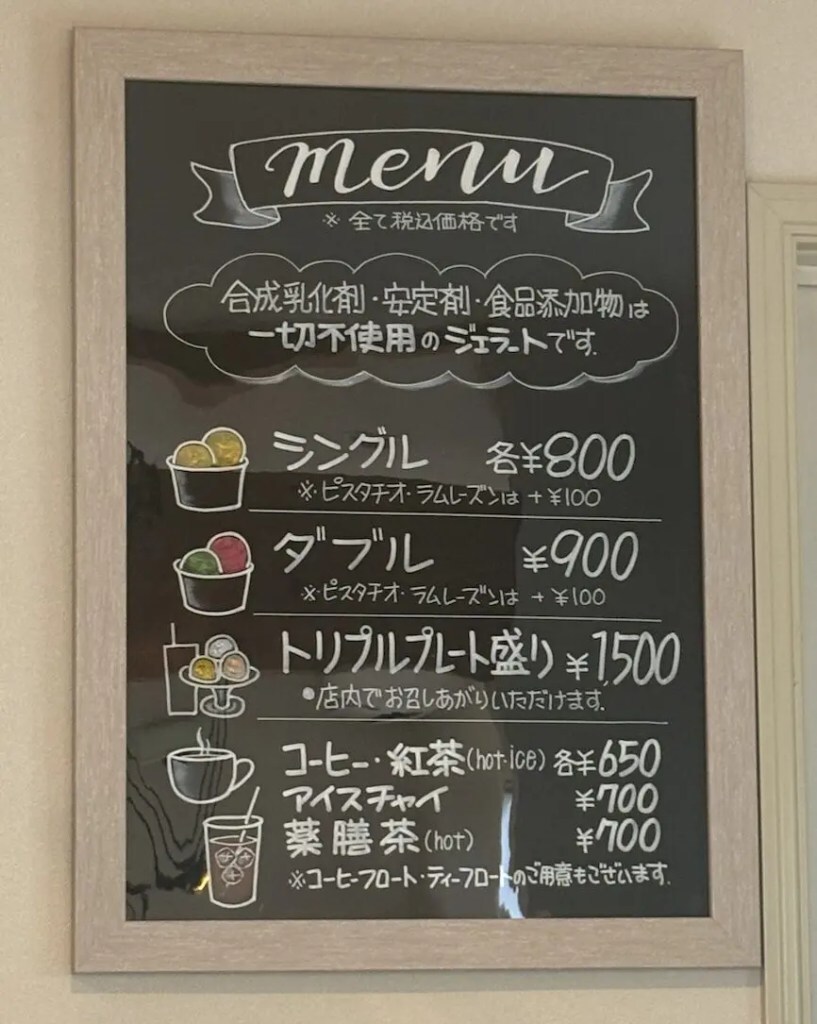 menu
※ 全て税込価格です
合成乳化剤・安定剤・食品添加物は
一切不使用のジェラートです.
シングル 各¥800
※・ピスタチオ・ラムレーズンは +¥100
ダブル ¥900
※・ピスタチオ・ラムレーズンは +¥100
トリプルプレート盛り ¥1,500
●店内でお召しあがりいただけます.
コーヒー・紅茶(hot・ice) 各¥650
アイスチャイ ¥700
薬膳茶(hot) ¥700
※コーヒーフロート・ティーフロートのご用意もございます.